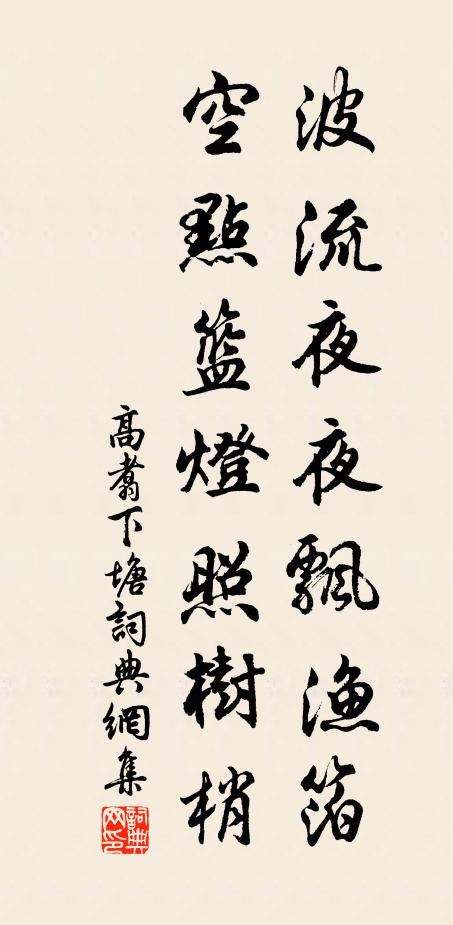 波流夜夜飄漁箔
空點籃燈照樹梢
高翥下塘詞典網集
詞典網印